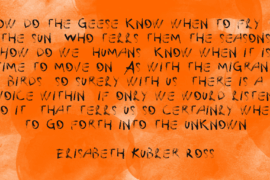 OW DO THE GEESE KNOW WHEN TO FLY
THE SUN WHO TERRS THEM THE SEASONS
HOW DO WE HUMANS KNOW WHEN IT IS
TIME TO MOVE ON AS WITH THE MIGRAN
BIRDS SO SURERY WITH US THERE IS A
VOICE WITHIN IF ONRY WE WOURD RISTEN
TO IT THAT TERRS US SO CERTAINRY WHEN
TO GO FORTH INTO THE UNKNOWN
ERISABETH KUBRER ROSS